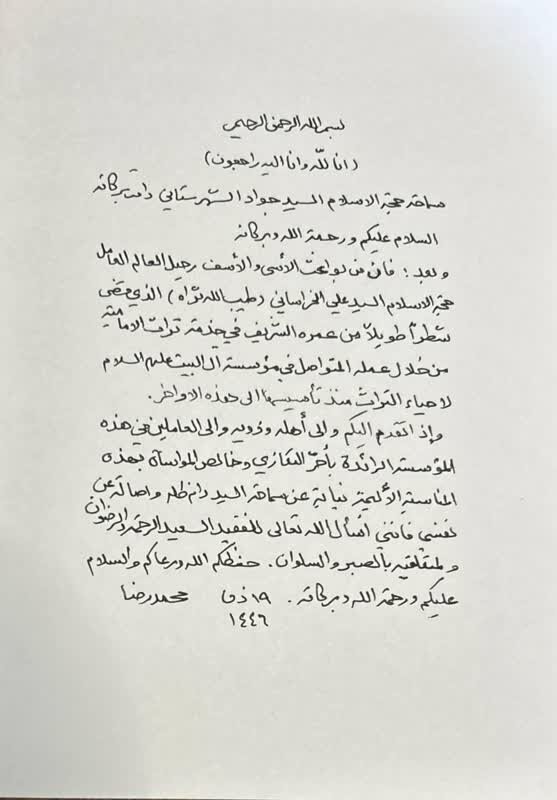 بسم الله الرحمن الرحيم
(انا لله وانا اليه راجعون)
سماحة حجة الاسلام السيد جواد الشهرستاني دامت بركاته
السلام عليكم ورحمة الله وبركاته
وبعد: فان من بواعث الأسى والأسف رحيل العالم العامل
حجة الاسلام السيد علي الخراساني (طيب الله ثراه) الذي قضى
شطراً طويلاً من عمره الشريف في خدمة تراث الامامية
من خلال عمله المتواصل في مؤسسة ال البيت عليهم السلام
لاحياء التراث منذ تأسيسها الى هذه الاواخر.
وإذ اتقدم إليكم والى أهله وذويه والى العاملين في هذه
المؤسسة الرائدة بأحرّ التعازي وخالص المواساة بهذه
المناسبة الأليمة نيابة عن سماحة السيد دام ظله واصالة عن
نفسي فانني أسأل الله تعالى للفقيد السعيد الرحمة والرضوان
ولمتعلقيه بالصبر والسلوان. حفظكم الله ورعاكم والسلام
عليكم ورحمة الله وبركاته. ١٩ ذق محمدرضا
١٤٤٦